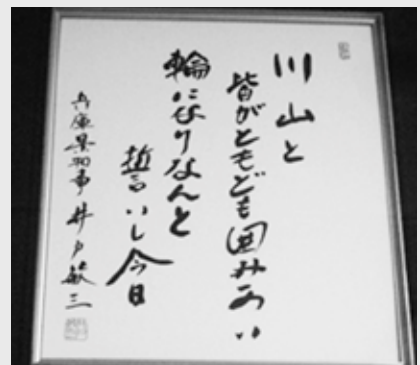 川山と
皆がともども囲みあい
輪になりなんと
誓いし今日
兵庫県知事 井戸敏三